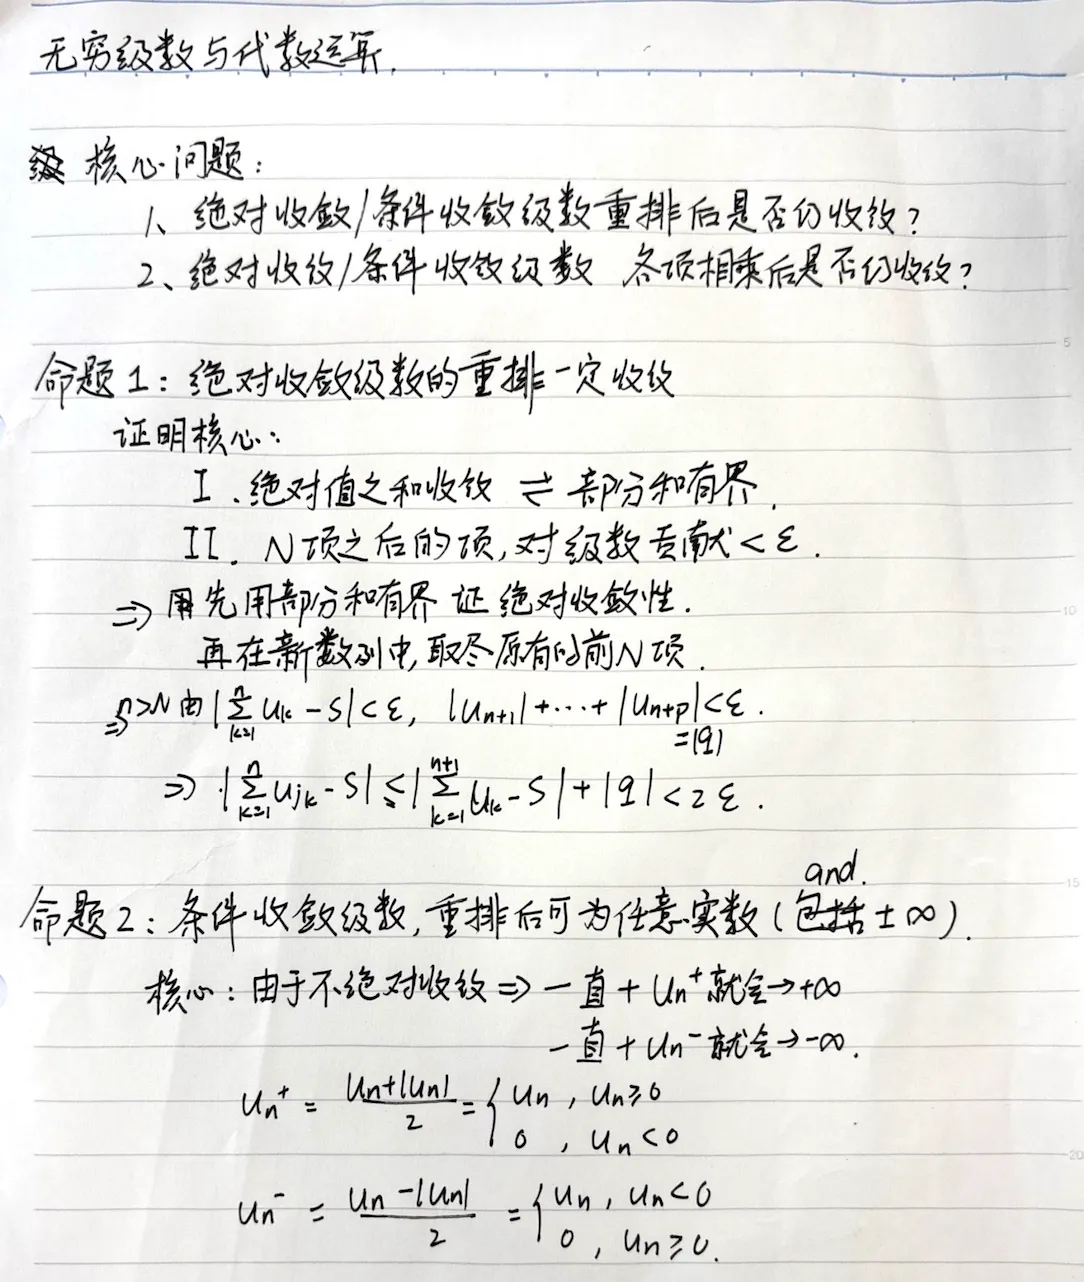 无穷级数与代数运算.
核心问题:
1、绝对收敛/条件收敛级数重排后是否仍收敛?
2、绝对收敛/条件收敛级数 各项相乘后是否仍收敛?
5
命题1: 绝对收敛级数的重排一定收敛
证明核心:
I. 绝对值之和收敛 ⇌ 部分和有界.
II. N项之后的项, 对级数贡献<ε.
⇒ 先用部分和有界 证 绝对收敛性.
10
再在新数列中, 取尽原有的前N项.
⇒ n>N 由 |∑_{k=1}^{n} u_k - S| < ε, |u_{n+1}|+⋯+|u_{n+p}| < ε.
=|q|
⇒ |∑_{k=1}^{n} u_{j_k} - S| ≤ |∑_{k=1}^{n+1} u_k - S| + |q| < 2ε.
and.
15
命题2: 条件收敛级数, 重排后可为任意实数 (包括 ±∞).
核心: 由于不绝对收敛 ⇒ 一直 + u_n^+ 就会→+∞
一直 + u_n^- 就会→-∞.
u_n^+ = (u_n+|u_n|)/2 = { u_n , u_n ≥ 0
0 , u_n < 0
20
u_n^- = (u_n-|u_n|)/2 = { u_n , u_n < 0
0 , u_n ≥ 0.